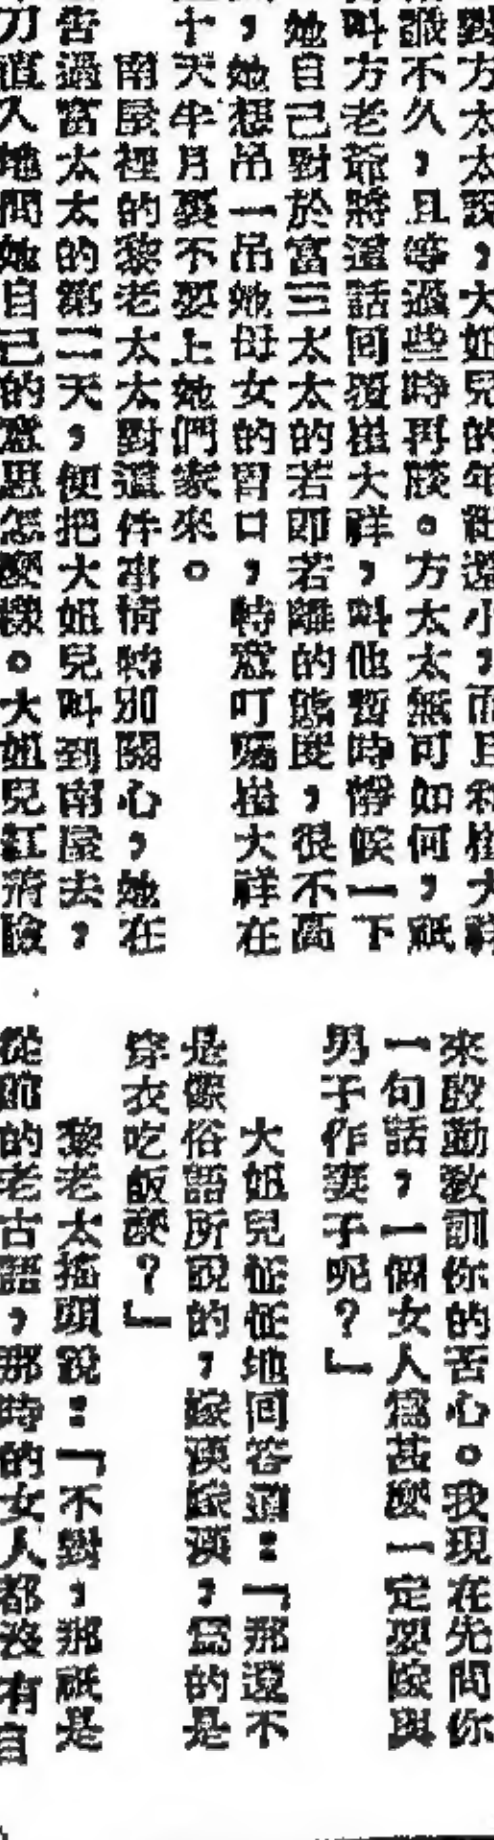 對方太太說，大姐兒的年紀還小，而且和崔大祥
識不久，且等過些時再談。方太太無可如何，祇
叫方老爺將這話回覆崔大祥，叫他暫時靜候一下
她自己對於富三太太的若即若離的態度，很不高
，她想吊一吊她母女的胃口，特意叮囑崔大祥在
十天半月裏不要上她們家來。
南屋裡的黎老太太對這件事情特別關心，她在
告過富太太的第二天，便把大姐兒叫到南屋去，
刀直入地問她自己的意思怎麼樣。大姐兒紅漲臉
來啟勤教訓你的苦心。我現在先問你
一句話，一個女人為甚麼一定要嫁與
男子作妻子呢？」
大姐兒怔怔地回答道：「那還不
是像俗語所說的，嫁漢嫁漢，為的是
穿衣吃飯麼？」
黎老太搖頭說：「不對，那祇是
從前的老古語，那時的女人都沒有自